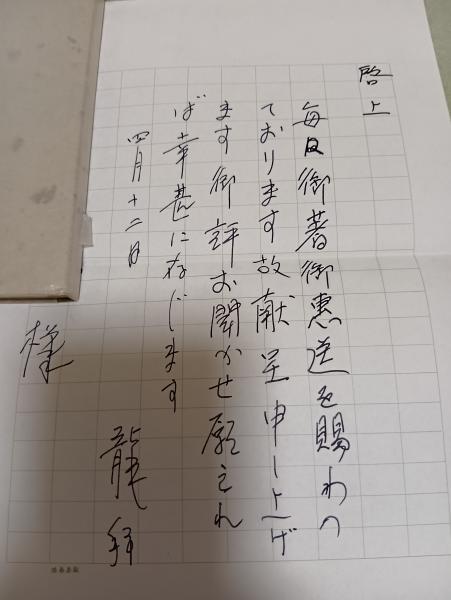 啓上
毎日御著御恵送を賜わつ
ております故献呈申し上げ
ます御評お聞かせ願えれ
ば幸甚に存じます
四月十二日
龍拝
様